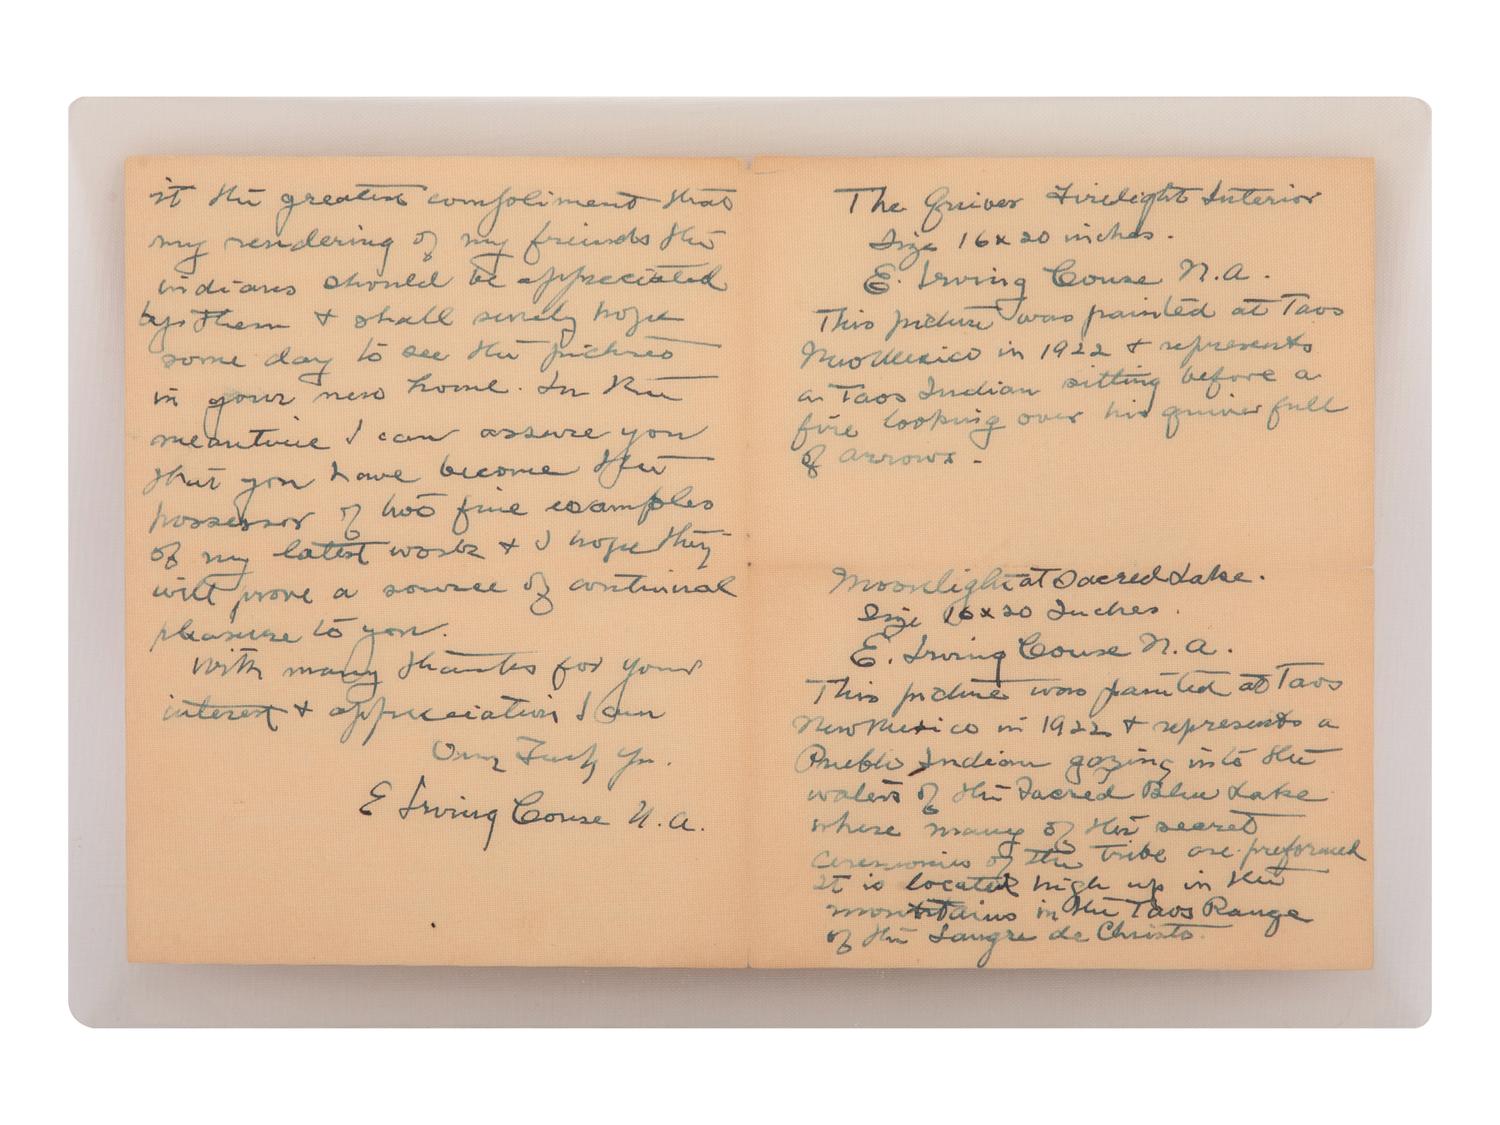 it the greatest compliment that
my rendering of my friends the
indians should be appreciated
by them & shall surely hope
some day to see the pictures
in your new home. In the
meantime I can assure you
that you have become the
possessor of two fine examples
of my latest work & I hope they
will prove a source of continual
pleasure to you.
With many thanks for your
interest & appreciation I am
Very Truly Yr.
E Irving Couse N.A.
The Quiver Firelight Interior
Size 16x20 inches.
E. Irving Couse N.A.
This picture was painted at Taos
New Mexico in 1922 & represents
a Taos Indian sitting before a
fire looking over his quiver full
of arrows.-
Moonlight at Sacred Lake.
Size 16x20 Inches.
E. Irving Couse N.A.
This picture was painted at Taos
New Mexico in 1922 & represents a
Pueblo Indian gazing into the
waters of the Sacred Blue Lake
where many of the secret
ceremonies of the tribe are preformed
It is located high up in the
mountains in the Taos Range
of the Sangre de Christo.